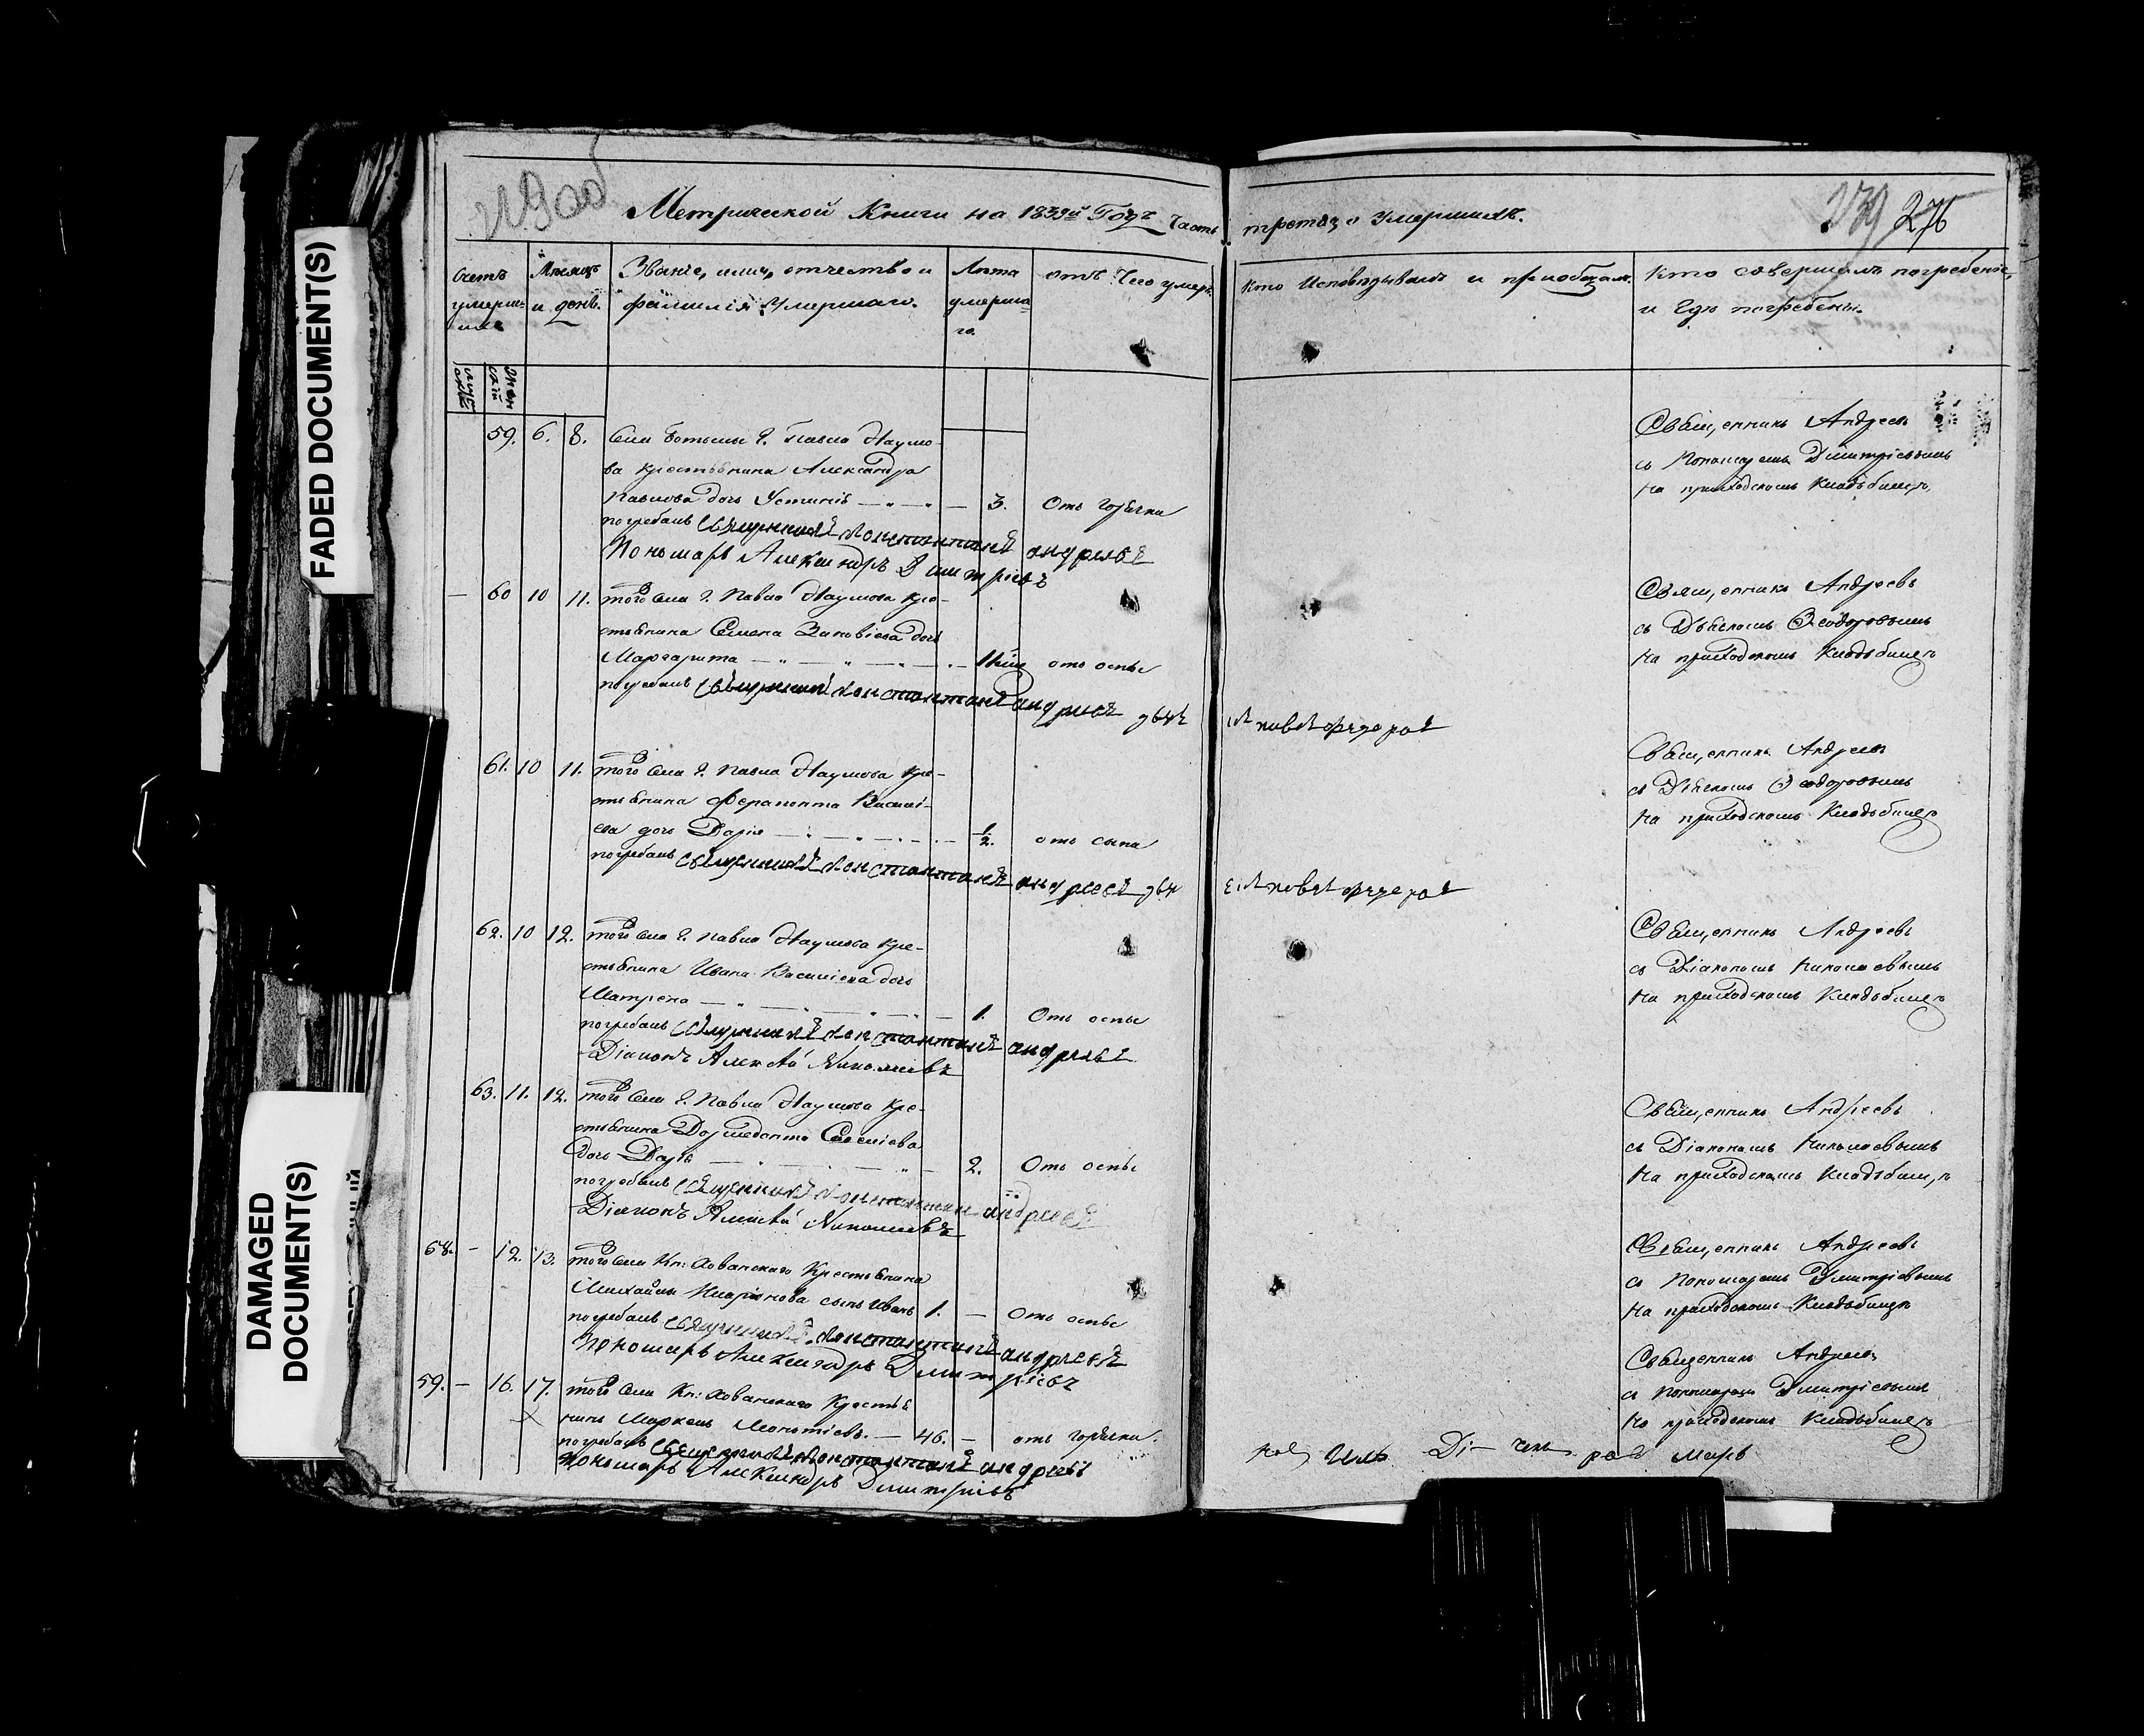 FADED DOCUMENT(S)
DAMAGED DOCUMENT(S)
Метрической Книги на 1839й Годъ Часть третія о Умершихъ.
239 276
Счетъ умерш- ихъ
Мѣсяцъ и день.
Званіе, имя, отчество и фамилія Умершаго.
Лѣта умерша- го.
отъ Чего умеръ.
Кто Исповѣдывалъ и приобщалъ.
Кто совершалъ погребеніе, и Гдѣ погребены.
59. 6. 8. Села Г. Павла Наумо-
ва крестьянина Александра
Павлова дочь Устинія 3. Отъ горячки
погребалъ Священникъ Константинъ Андреевъ
Пономарь Александръ Димитріевъ
Священникъ Андреевъ
съ Пономаремъ Димитріевымъ
На приходскомъ Кладбищѣ
60 10 11. того Села Г. Павла Наумова Кре-
стьянина Семена Зиновіева дочь
Маргарита отъ оспы
погребалъ Священникъ Константинъ Андреевъ дьячекъ Павелъ Федоровъ
Священникъ Андреевъ
съ Дьячкомъ Ѳеодоровымъ
На приходскомъ Кладбищѣ
61. 10 11. того Села Г. Павла Наумова Кре-
стьянина Ферапонта Василі-
ева дочь Дарія 1/2. отъ сыпи
погребалъ Священникъ Константинъ Андреевъ Павелъ Федоровъ
Священникъ Андреевъ
съ Дьячкомъ Ѳеодоровымъ
На приходскомъ Кладбищѣ
62. 10 12. того Села Г. Павла Наумова Кре-
стьянина Ивана Василіева дочь
Матрена 1. Отъ оспы
погребалъ Священникъ Константинъ Андреевъ
Діаконъ Алексѣй Николаевъ
Священникъ Андреевъ
съ Діакономъ Николаевымъ
На приходскомъ Кладбищѣ
63. 11. 12. того Села Г. Павла Наумова Кре-
стьянина Дормедонта
дочь Дарія 2. Отъ оспы
погребалъ Священникъ Константинъ Андреевъ
Діаконъ Алексѣй Николаевъ
Священникъ Андреевъ
съ Діакономъ Николаевымъ
На приходскомъ Кладбищѣ
– 12. 13. того Села Кн: Хованскаго Крестьянина
Михайлы Иларіонова сынъ Иванъ 1. – Отъ оспы
погребалъ Священникъ Константинъ Андреевъ
Пономарь Александръ Димитріевъ
Священникъ Андреевъ
съ Пономаремъ Димитріевымъ
На приходскомъ Кладбищѣ
59. – 16. 17. того Села Кн: Хованскаго Крестья-
нинъ Маркелъ 46. – отъ горячки.
погребалъ Священникъ Константинъ Андреевъ
Пономарь Александръ Димитріевъ
Священникъ Андреевъ
съ Пономаремъ Димитріевымъ
На приходскомъ Кладбищѣ